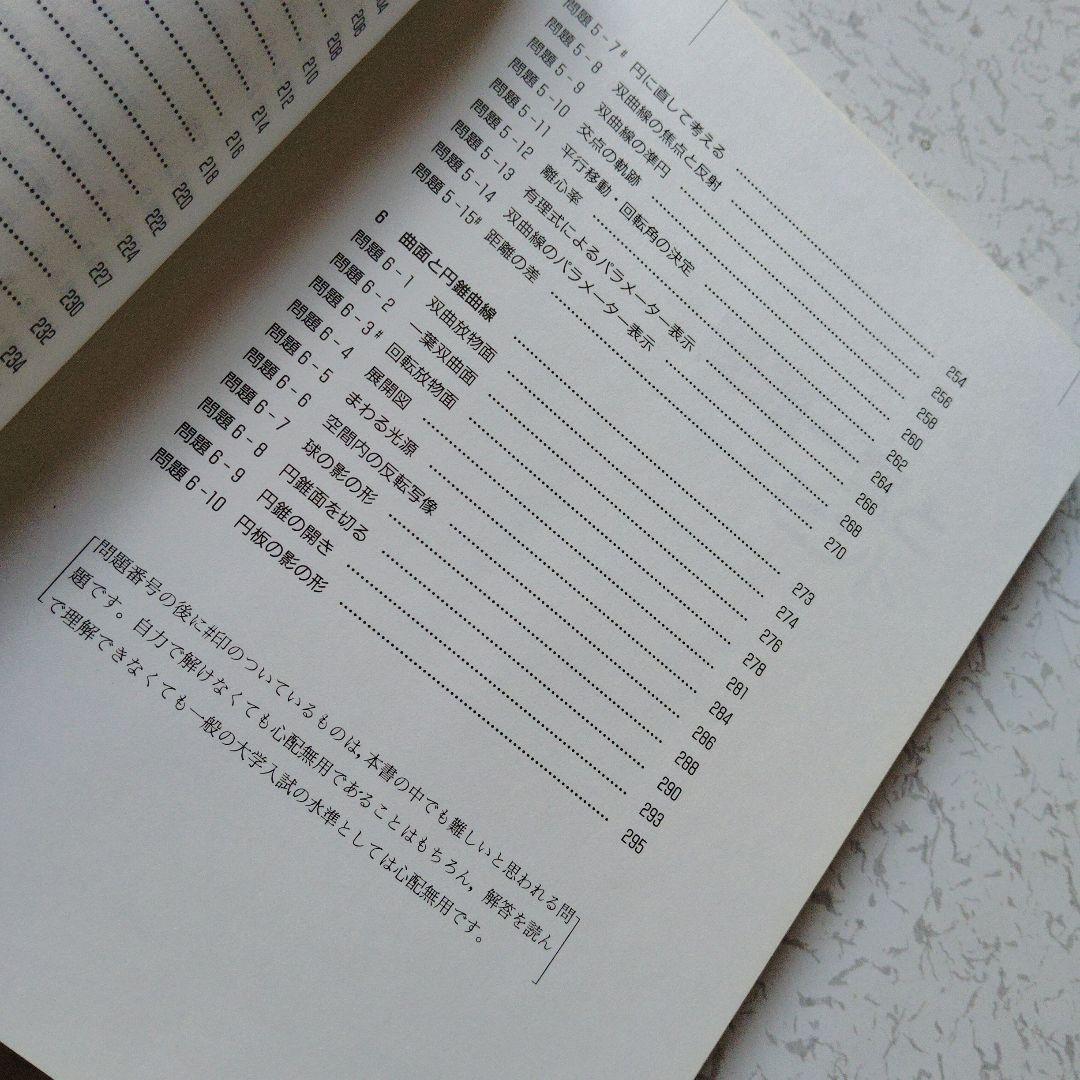 206
208
210
212
214
216
218
220
222
224
227
230
232
234
問題5-7# 円に直して考える 254
問題5-8 双曲線の焦点と反射 256
問題5-9 双曲線の準円 258
問題5-10 交点の軌跡 260
問題5-11 平行移動・回転角の決定 262
問題5-12 離心率 264
問題5-13 有理式によるパラメーター表示 266
問題5-14 双曲線のパラメーター表示 268
問題5-15# 距離の差 270
6 曲面と円錐曲線 273
問題6-1 双曲放物面 274
問題6-2 一葉双曲面 276
問題6-3# 回転放物面 278
問題6-4 展開図 281
問題6-5 まわる光源 284
問題6-6 空間内の反転写像 286
問題6-7 球の影の形 288
問題6-8 円錐面を切る 290
問題6-9 円錐の開き 293
問題6-10 円板の影の形 295
問題番号の後に#印のついているものは，本書の中でも難しいと思われる問
題です。自力で解けなくても心配無用であることはもちろん，解答を読ん
で理解できなくても一般の大学入試の水準としては心配無用です。